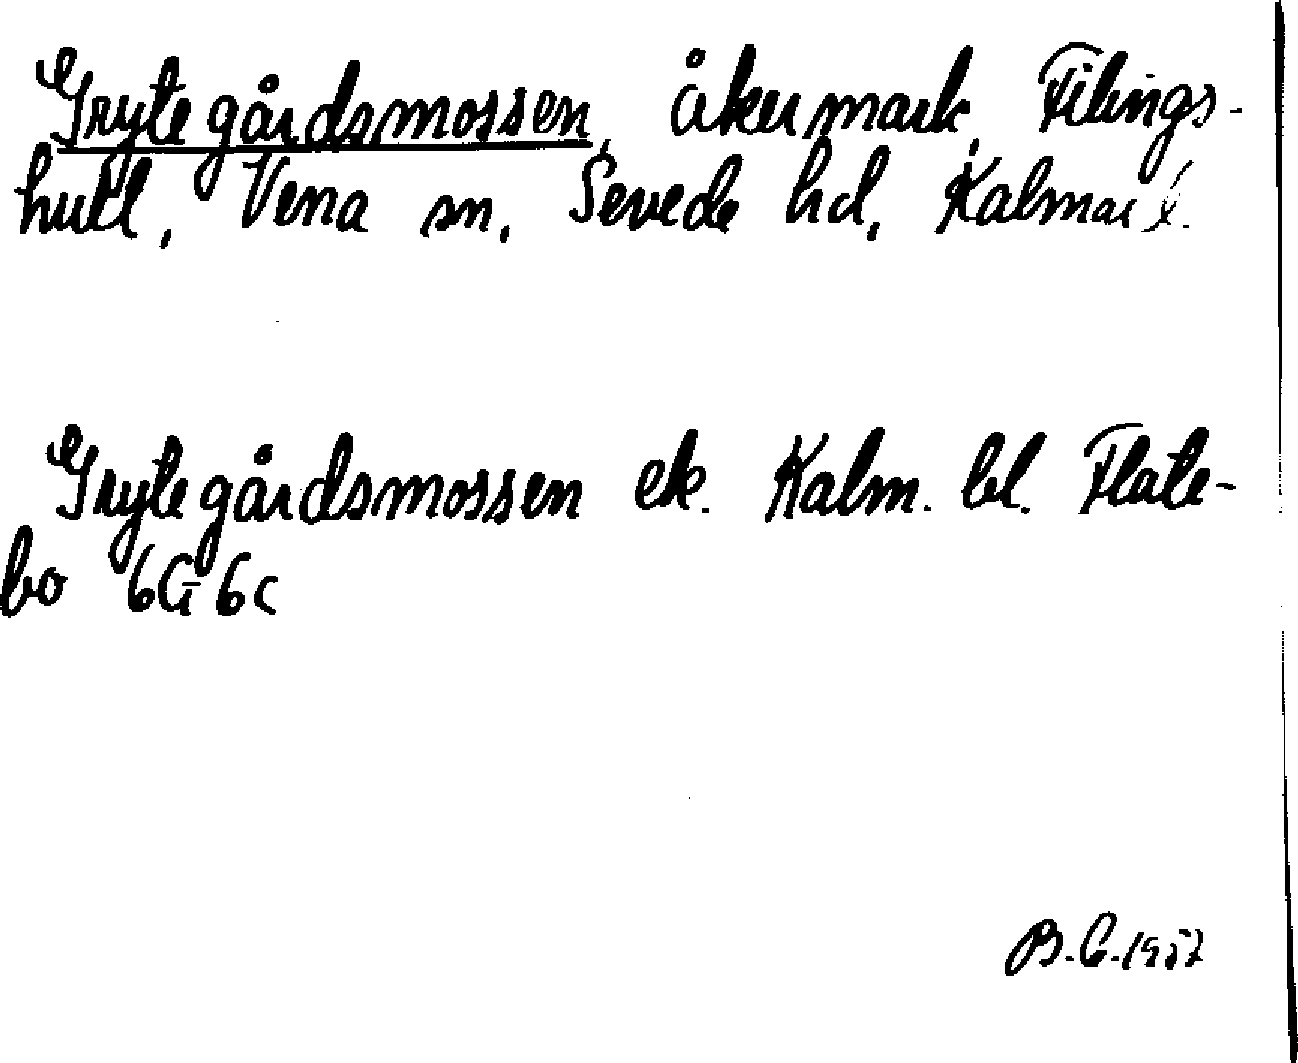 Grytegårdsmossen, åkermark, Filings-
hult, Vena sn, Sevede hd, Kalmar l.
Grytegårdsmossen ek. Kalm. bl. Flate-
bo 6G 6c
B.C. 1957